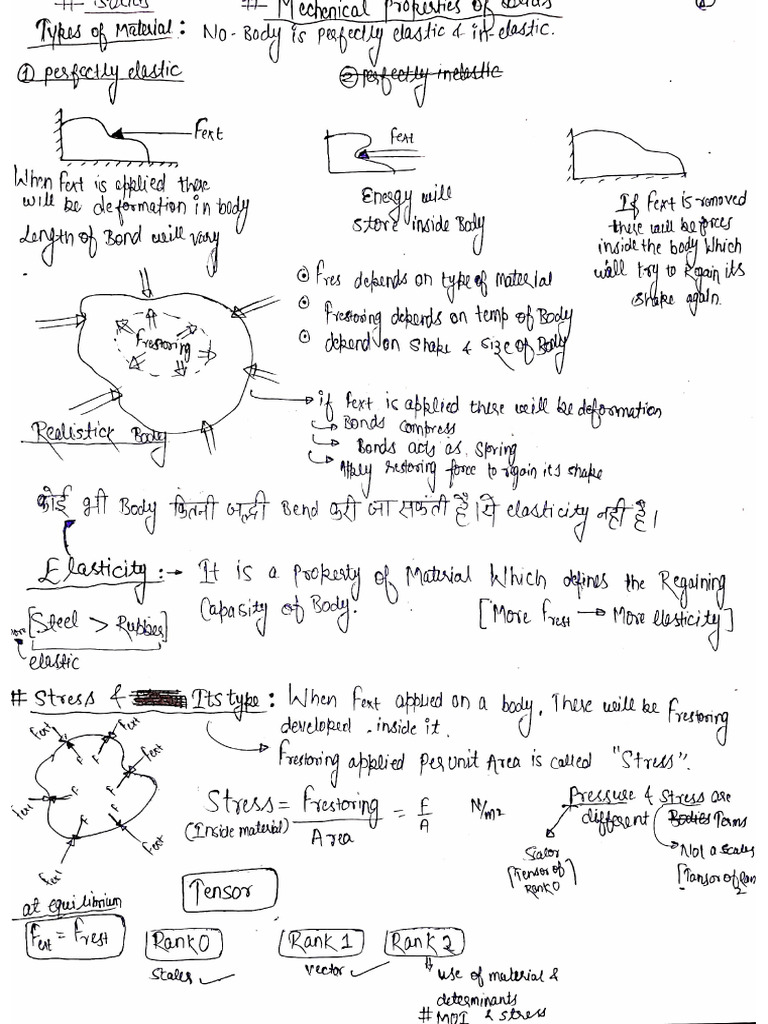 # Solids
# Mechenical Properties of Solids
Types of Material: No-Body is perfectly elastic & in-elastic.
① perfectly elastic
② perfectly inelastic
Fext
Fext
When Fext is applied there
will be deformation in body
Length of Bond will vary
Energy will
Store inside Body
If Fext is removed
there will be forces
inside the body which
will try to Regain its
Shake again.
Fres depends on type of material
Frestoring depends on temp of Body
depend on Shape & Size of Body
Frestoring
Realistick Body
if Fext is applied there will be deformation
Bonds compress
Bonds acts as Spring
Apply restoring force to regain its shape
कोई भी Body कितनी जल्दी Bend करी जा सकती है। ये elasticity नही है।
Elasticity:→ It is a Property of Material Which defines the Regaining
Capasity of Body.
[More Frest → More elesticity]
[Steel > Rubber]
more
elastic
# Stress & Its type: When Fext applied on a body, There will be Frestoring
developed inside it.
Frestoring applied Per unit Area is called "Stress".
Fext
Fext
Fext
Fext
Fext
Fext
F
F
F
F
F
F
Stress = Frestoring / Area = F / A N/m2
(Inside material)
Pressure & Stress are
different Bodies Terms
Scaler
[Tensor of
Rank 0]
Not a Scaler
[Tansor of Ran
2
Tensor
at equilibrium
Fext = Frest
Rank 0
Scaler
Rank 1
vector
Rank 2
use of material &
determinants
# MOI & Stress